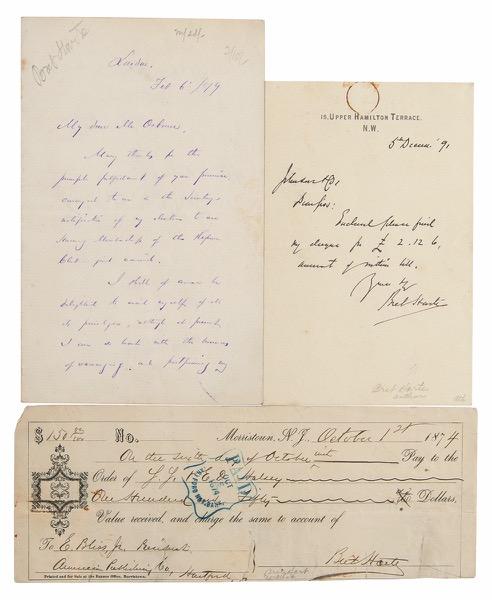 Bret Harte
London
Feb 6th/79
My dear Mr Osborne,
Many thanks for the
prompt fulfilment of your promise
conveyed to me in the Secretary's
notification of my election to an
Honorary Membership of the
Club just received.
I shall of course be
delighted to avail myself of all
its privileges, although at present,
I am so busy with the
of arranging, and postponing my
15, UPPER HAMILTON TERRACE.
N.W.
5th Decem '91
Dear Sirs:
Enclosed please find
my cheque for £ 2.12.6,
amount of
Yours truly
Bret Harte
Bret Harte
author
$150 00/100 No. Morristown, N.J. October 1st 1874
On the sixth day of October inst. Pay to the
Order of Halsey
One Hundred Fifty Dollars.
Value received, and charge the same to account of
To E. Bliss Jr. President
American Publishing Co, Hartford
Bret Harte
Printed and for Sale at the Banner Office, Morristown.
PAID